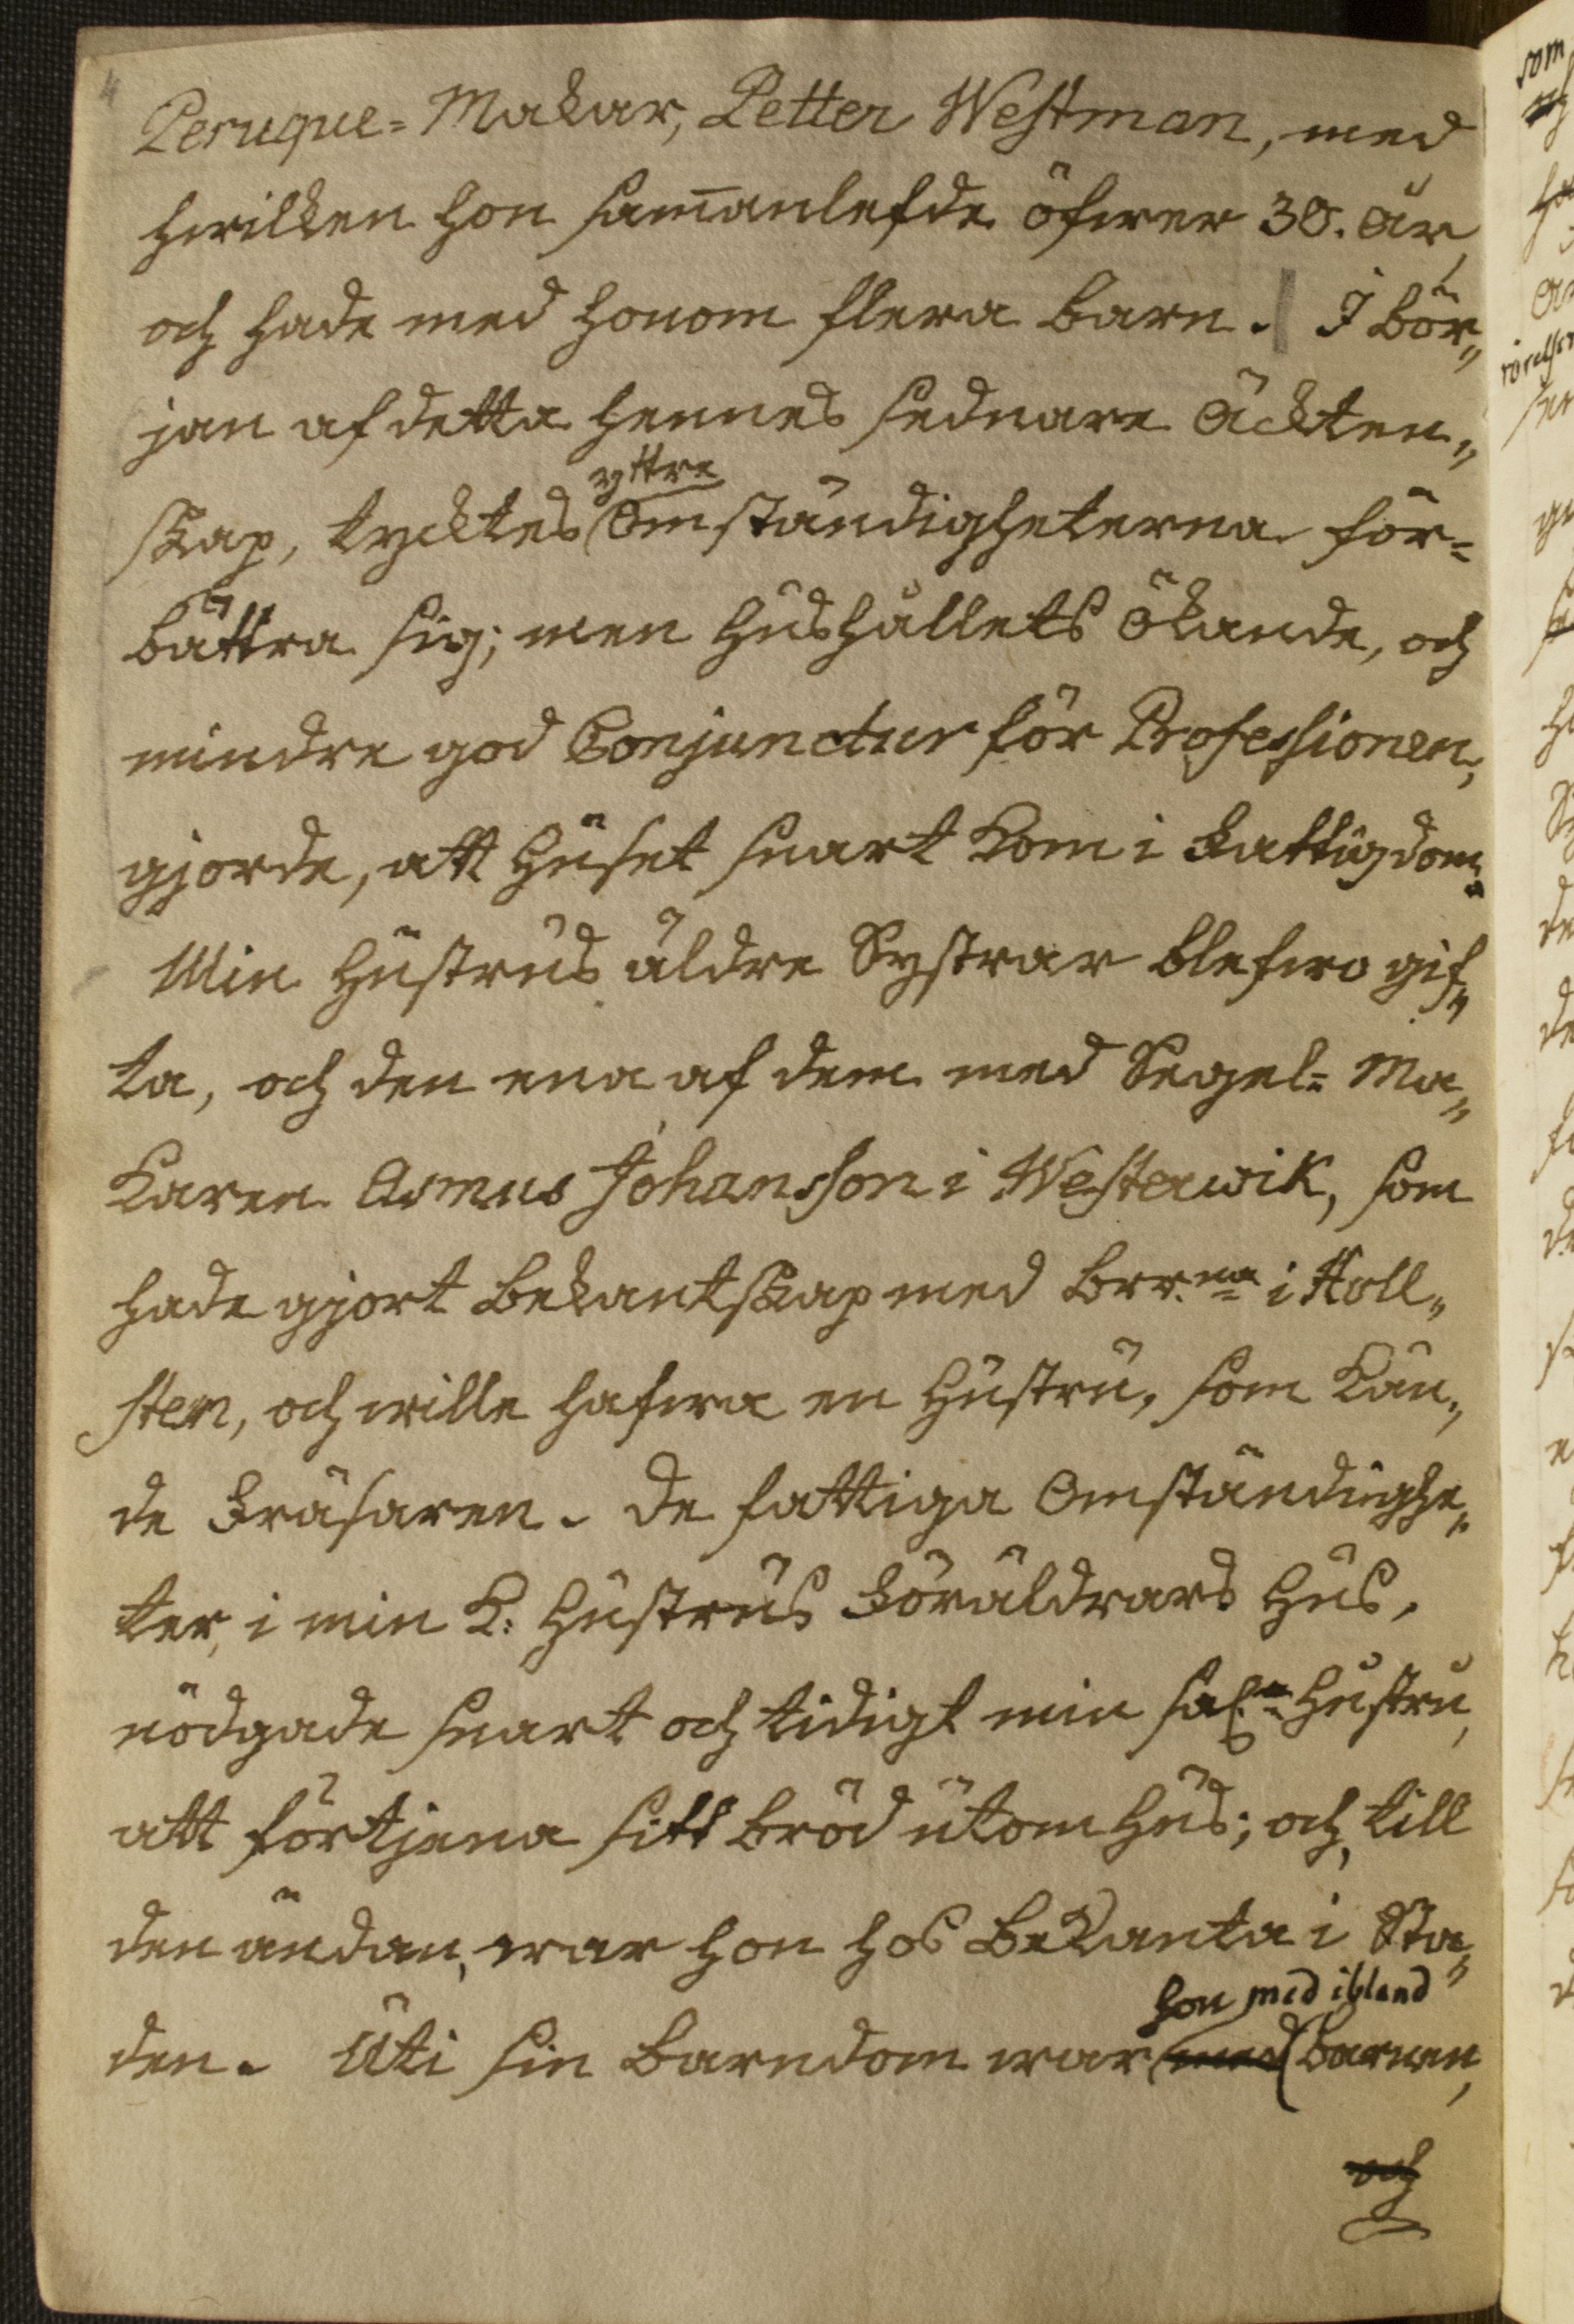 4
Peruque= Makar, Petter Westman, med
hwilken hon sam̄anlefde öfwer 30. år,
och hade med honom flera barn. I bör„
jan af detta hennes sednare Äckten„
skap, tycktes yttre Omständigheterna för=
bättra sig; men Hushållets Ökande, och
mindre god Conjunctur för Professionen,
gjorde, att Huset snart kom i Fattigdom.
Min Hustrus äldre Systrar blefwo gif„
ta, och den ena af dem med Segel= Ma„
karen Asmus Johansson i Westerwik, som
hade gjort bekantskap med Brr.na i Holl„
stein, och wille hafwa en Hustru, som kän„
de Frälsaren. De fattiga Omständighe„
ter, i min K: Hustrus Föräldrars Hus,
nödgade snart och tidigt min Sal. Hustru,
att förtjena sitt bröd utom Hus; och, till
den ändan, war hon hos Bekanta i Sta„
den. Uti sin Barndom war hon med ibland Barnen,
och